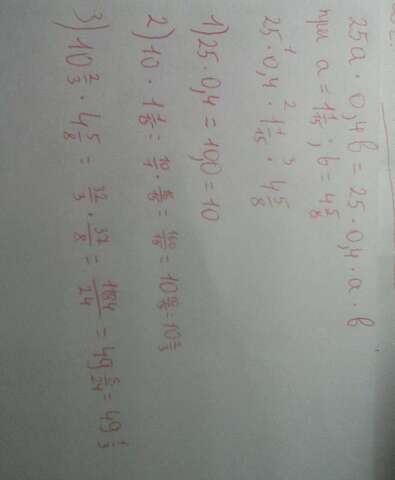 25a · 0,4b = 25 · 0,4 · a · b
при a = 1 1/15 ; b = 4 5/8
25 · 0,4 · 1 1/15 · 4 5/8
1 2 3
1) 25 · 0,4 = 10,0 = 10
2) 10 · 1 1/15 = 10/1 · 16/15 = 160/15 = 10 10/15 = 10 2/3
3) 10 2/3 · 4 5/8 = 32/3 · 37/8 = 1184/24 = 49 8/24 = 49 1/3